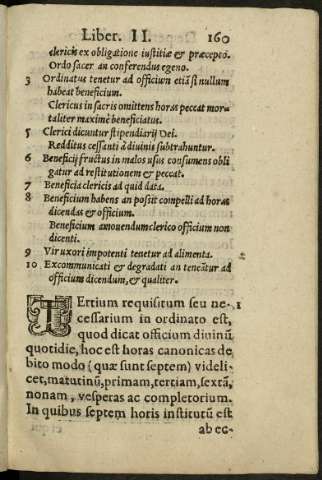 Liber. II. 160
clericis ex obligatione iustitiæ & præcepto.
Ordo sacer an conferendus egeno.
3 Ordinatus tenetur ad officiun etiã si nullum
habeat beneficium.
Clericus in sacris omittens horas peccat mor-
taliter maximè beneficiatus.
5 Clerici dicuntur stipendiarij Dei.
Redditus cessanti à diuinis subtrahuntur.
6 Beneficij fructus in malos usus consumens obli
gatur ad restitutionem & peccat.
7 Beneficia clericis ad quid data.
8 Beneficium habens an possit compelli ad horas
dicendas & officium.
Beneficium amouendum clerico officium non
dicenti.
9 Vir uxori impotenti tenetur ad alimenta.
10 Excommunicati & degradati an teneãtur ad
officium dicendum, & qualiter.
TErtium requisitum seu ne- 1
cessarium in ordinato est,
quod dicat officium diuinũ
quotidie, hoc est horas canonicas de
bito modo (quæ sunt septem) videli-
cet, matutinũ, primam, tertiam, sextã,
nonam, vesperas ac completorium.
In quibus septem horis institutũ est
ab ec-